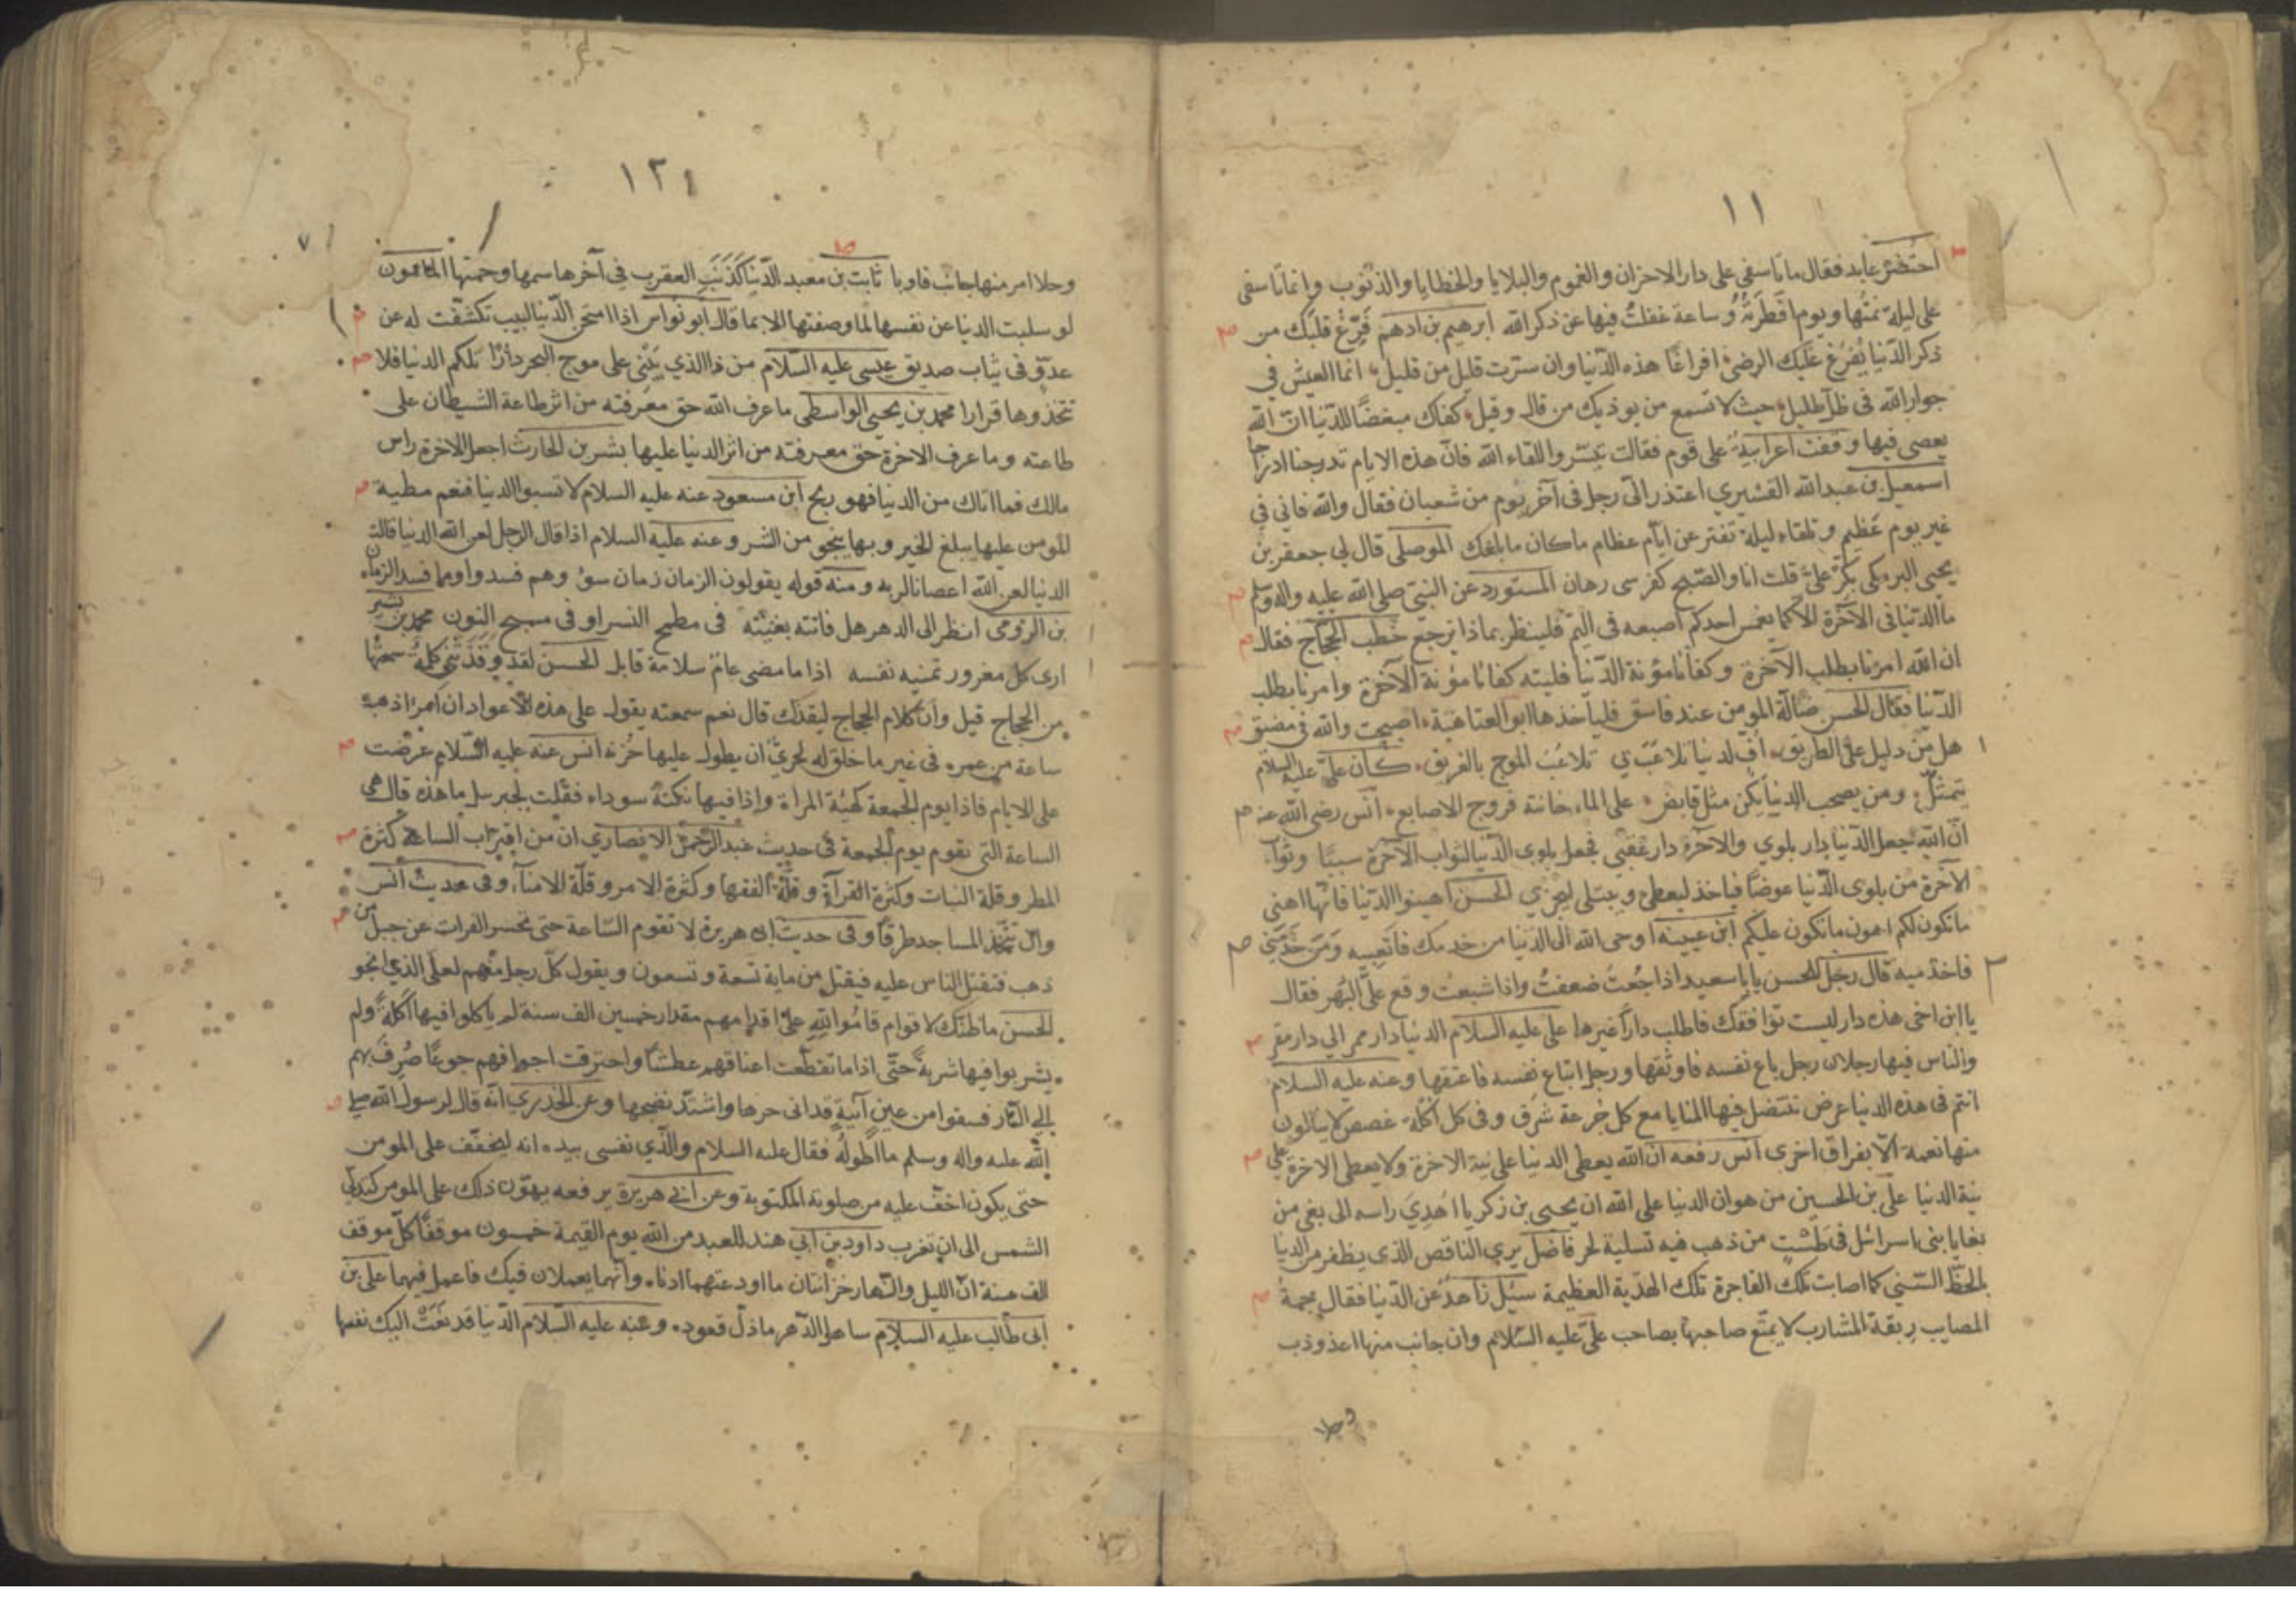 ١١
احتضر عابد فقال ما تاسفي على دار الاحزان والغموم والبلايا والخطايا والذنوب وانما تاسفي
على ليلة نمتها ويوم افطرته وساعة غفلت فيها عن ذكر الله ابرهيم بن ادهم فرّغ قلبك من
ذكر الدنيا يفرغ عليك الرضى افراغا هذه الدنيا وان سترت قليل من قليل انما العيش في
جوار الله في ظل ظليل حيث لا تسمع من يوذيك من قال وقيل كفاك مبغضا للدنيا ان الله
يعصى فيها وقفت اعرابية على قوم فقالت تيسروا للقاء الله فان هذه الايام تدرجنا ادراجا
اسمعيل بن عبد الله القشيري اعتذر الى رجل في آخر يوم من شعبان فقال والله فاني في
غير يوم عظيم وتلقاء ليلة تفتر عن ايام عظام ما كان ما بلغك الموصلي قال لي جعفر بن
يحيى البرمكي بكر علي قلت انا والصبح كفرسى رهان المستورد عن النبي صلى الله عليه واله وسلم
ما الدنيا في الآخرة الا كما يغمس احدكم اصبعه في اليم فلينظر بماذا ترجع خطب الحجاج فقال
ان الله امرنا بطلب الآخرة وكفانا مؤنة الدنيا فليته كفانا مؤنة الآخرة وامرنا بطلب
الدنيا فقال الحسن ضالة المومن عند فاسق فلياخذها ابو العتاهية اصبحت والله في مضيق
هل من دليل على الطريق اف لدنيا تلاعبت بي تلاعب الموج بالغريق كان علي عليه السلام
يتمثل ومن يصحب الدنيا يكن مثل قابض على الماء خانته فروج الاصابع انس رضي الله عنه
ان الله جعل الدنيا دار بلوي والاخرة دار عقبى فجعل بلوى الدنيا لثواب الآخرة سببا وثواب
الآخرة من بلوى الدنيا عوضا فياخذ ليعطي ويبتلى ليجزي الحسن اهينوا الدنيا فانها اهنى
ما تكون لكم اهون ما تكون عليكم ابن عيينه اوحى الله الى الدنيا من خدمك فاتعبيه ومن خدمني
فاخدميه قال رجل للحسن يابا سعيد اذا جعت ضعفت واذا شبعت وقع علي البهر فقال
يا ابن اخى هذه دار ليست توافقك فاطلب دارا غيرها علي عليه السلام الدنيا دار ممر الي دار مقر
والناس فيها رجلان رجل باع نفسه فاوثقها ورجل ابتاع نفسه فاعتقها وعنه عليه السلام
انتم في هذه الدنيا عرض تنتضل فيها المنايا مع كل جرعة شرق وفي كل اكلة غصص لا ينالون
منها نعمة الا بفراق اخرى انس رفعه ان الله يعطى الدنيا على نية الاخرة ولا يعطى الاخرة على
نية الدنيا علي بن الحسين من هوان الدنيا على الله ان يحيى بن زكريا اهدي راسه الى بغى من
بغايا بنى اسرائل في طشت من ذهب فيه تسلية لحر فاضل يري الناقص الذى يظفر من الدنيا
بالحظ السني كما اصابت تلك الفاجرة تلك الهدية العظيمة سئل زاهد عن الدنيا فقال جمة
المصايب ربقة المشارب لا يمتع صاحبها بصاحب علي عليه السلام وان جانب منها اعذوذب
وحلا
١٢١
وحلا امر منها جانب فاوبا ثابت بن معبد الدنيا كذنب العقرب في آخرها سمها وحمتها المامون
لو سلبت الدنيا عن نفسها لما وصفتها الا بما قال ابو نواس اذا امتحن الدنيا لبيب تكشفت له عن
عدو في ثياب صديق عيسى عليه السلام من ذا الذي يبنى على موج البحر دارا تلكم الدنيا فلا
تتخذوها قرارا محمد بن يحيى الواسطى ما عرف الله حق معرفته من اثر طاعة الشيطان على
طاعته وما عرف الاخرة حق معرفته من اثر الدنيا عليها بشر بن الحارث اجعل الاخرة راس
مالك فما اتاك من الدنيا فهو ربح ابن مسعود عنه عليه السلام لا تسبوا الدنيا فنعم مطية
المومن عليها يبلغ الخير وبها ينجو من الشر وعنه عليه السلام اذا قال الرجل لعن الله الدنيا قالت
الدنيا لعن الله اعصانا لربه ومنه قوله يقولون الزمان زمان سوء وهم فسدوا وما فسد الزمان
بن الرومى انظر الى الدهر هل فاتته بغيته في مطمح النسر او في مسبح النون محمد بن بشير
ارى كل مغرور تمنيه نفسه اذا ما مضى عام سلامة قابل الحسن لقد وقذتني كلمة سمعتها
من الحجاج قيل وان كلام الحجاج ليقذك قال نعم سمعته يقول على هذه الاعواد ان امرا ذهبت
ساعة من عمره في غير ما خلق له لحري ان يطول عليها حزنه انس عنه عليه السلام عرضت
على الايام فاذا يوم الجمعة كهيئة المراة واذا فيها نكتة سوداء فقلت لجبريل ما هذه قال هي
الساعة التى تقوم يوم الجمعة في حديث عبد الرحمن الانصاري ان من اقتراب الساعة كثرة
المطر وقلة النبات وكثرة القرآء وقلة الفقها وكثرة الامر وقلة الامناء وفى حديث انس
وان تتخذ المساجد طرقا وفى حديث ابى هريرة لا تقوم الساعة حتى يحسر الفرات عن جبل من
ذهب فتقتل الناس عليه فيقتل من ماية تسعة وتسعون ويقول كل رجل منهم لعلى الذي انجو
الحسن ما ظنك لاقوام قاموا لله على اقدامهم مقدار خمسين الف سنة لم ياكلوا فيها اكلة ولم
يشربوا فيها شربة حتى اذا ما تقطعت اعناقهم عطشا واحترقت اجوافهم جوعا صرف بهم
الي النار فسقوا من عين آنية قد انى حرها واشتد نضجها وعن الخدري انه قال لرسول الله صلى
الله عليه واله وسلم ما اطوله فقال عليه السلام والذي نفسى بيده انه ليخفف على المومن
حتى يكون اخف عليه من صلوته المكتوبة وعن ابى هريرة يرفعه يهون ذلك على المومن كتدلي
الشمس الى ان تغرب داود بن ابي هند للعبد من الله يوم القيمة خمسون موقفا كل موقف
الف سنة ان الليل والنهار خزانتان ما اودعتهما ادناه وانهما يعملان فيك فاعمل فيهما على بن
ابى طالب عليه السلام ساهل الدهر ما ذل قعود. وعنه عليه السلام الدنيا قد نعت اليك نفسها